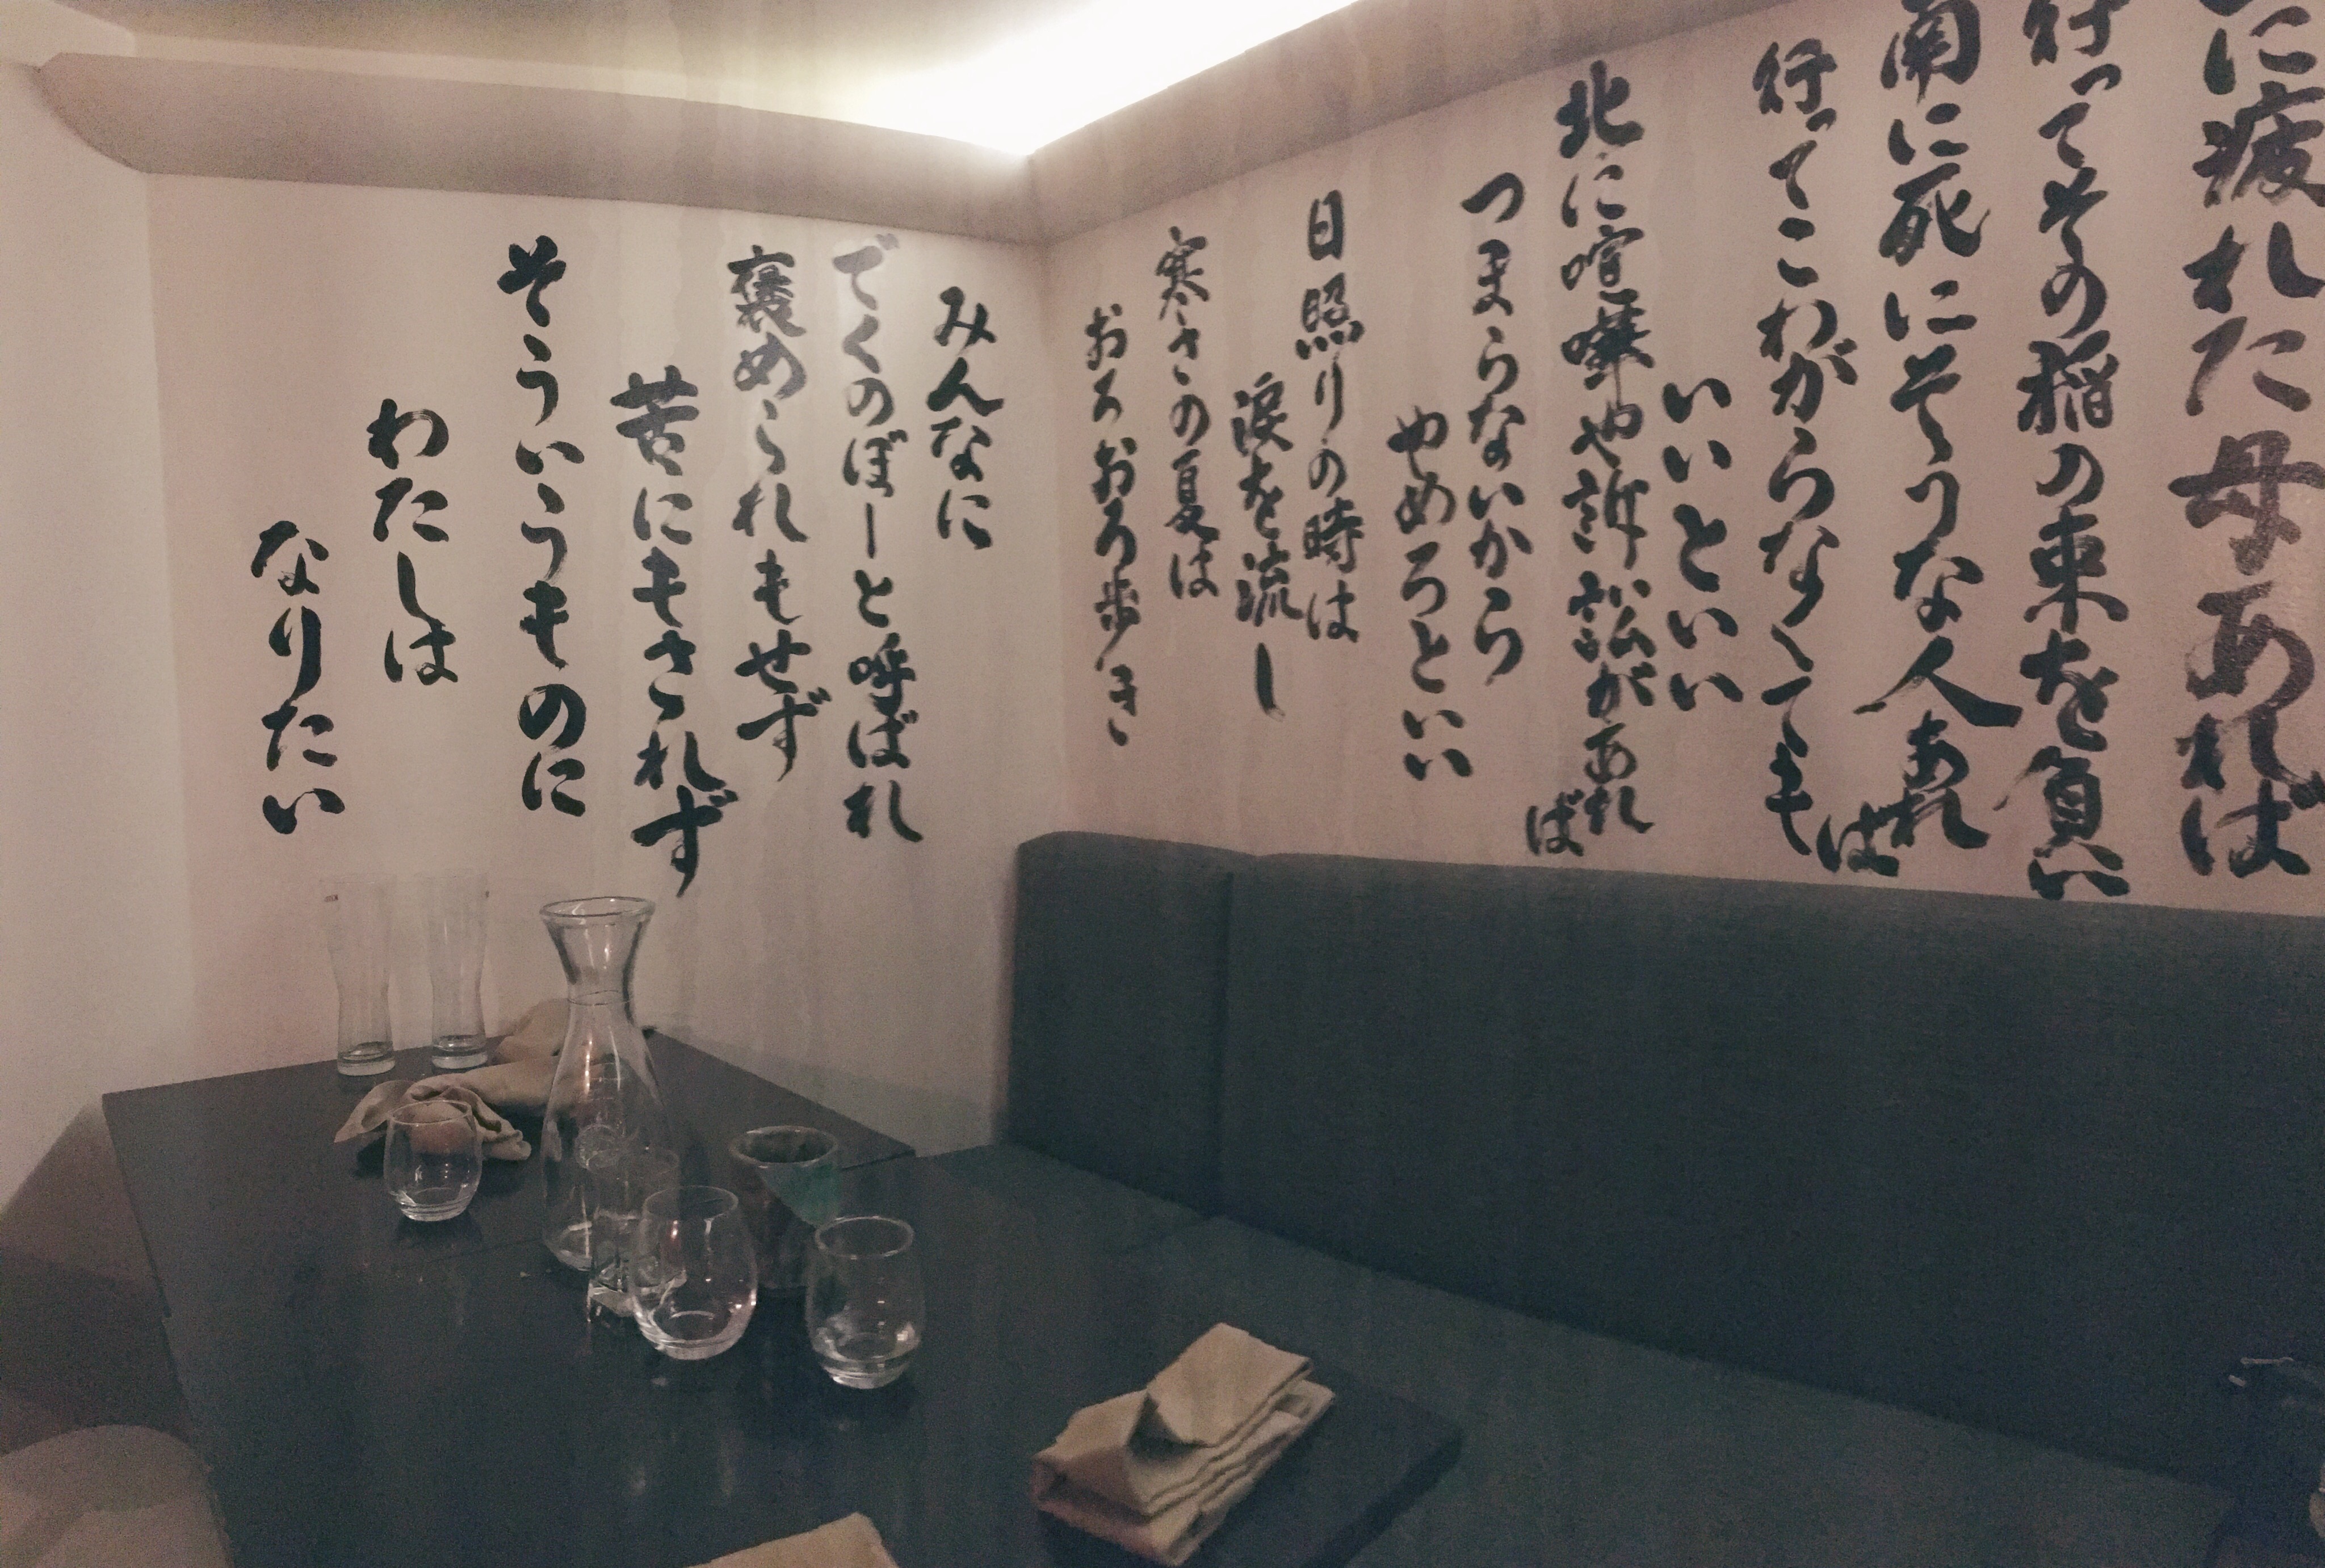 に疲れた母あれば
行ってその稲の束を負い
南に死にそうな人あれば
行ってこわがらなくても
いいといい
北に喧嘩や訴訟があれば
つまらないから
やめろといい
日照りの時は
涙を流し
寒さの夏は
おろおろ歩き
みんなに
でくのぼーと呼ばれ
褒められもせず
苦にもされず
そういうものに
わたしは
なりたい